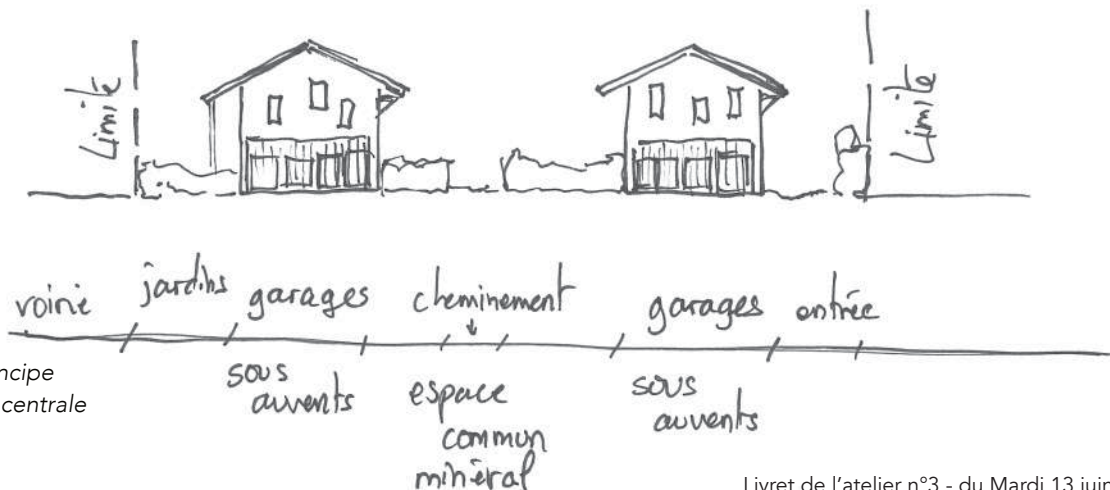 Limité
Limité
voirie jardins garages cheminement garages entrée
sous auvents
espace commun minéral
sous auvents
ncipe
centrale
Livret de l'atelier n°3 - du Mardi 13 juin